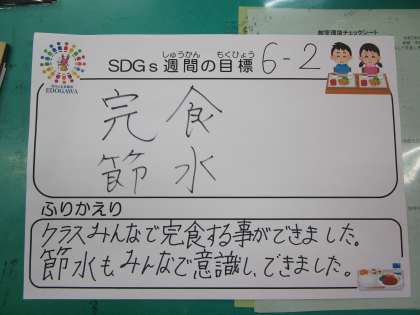 SDGs週間の目標 6-2
しゅうかん もくひょう
完食
節水
ふりかえり
クラスみんなで完食する事ができました。
節水もみんなで意識し、できました。
EDOGAWA